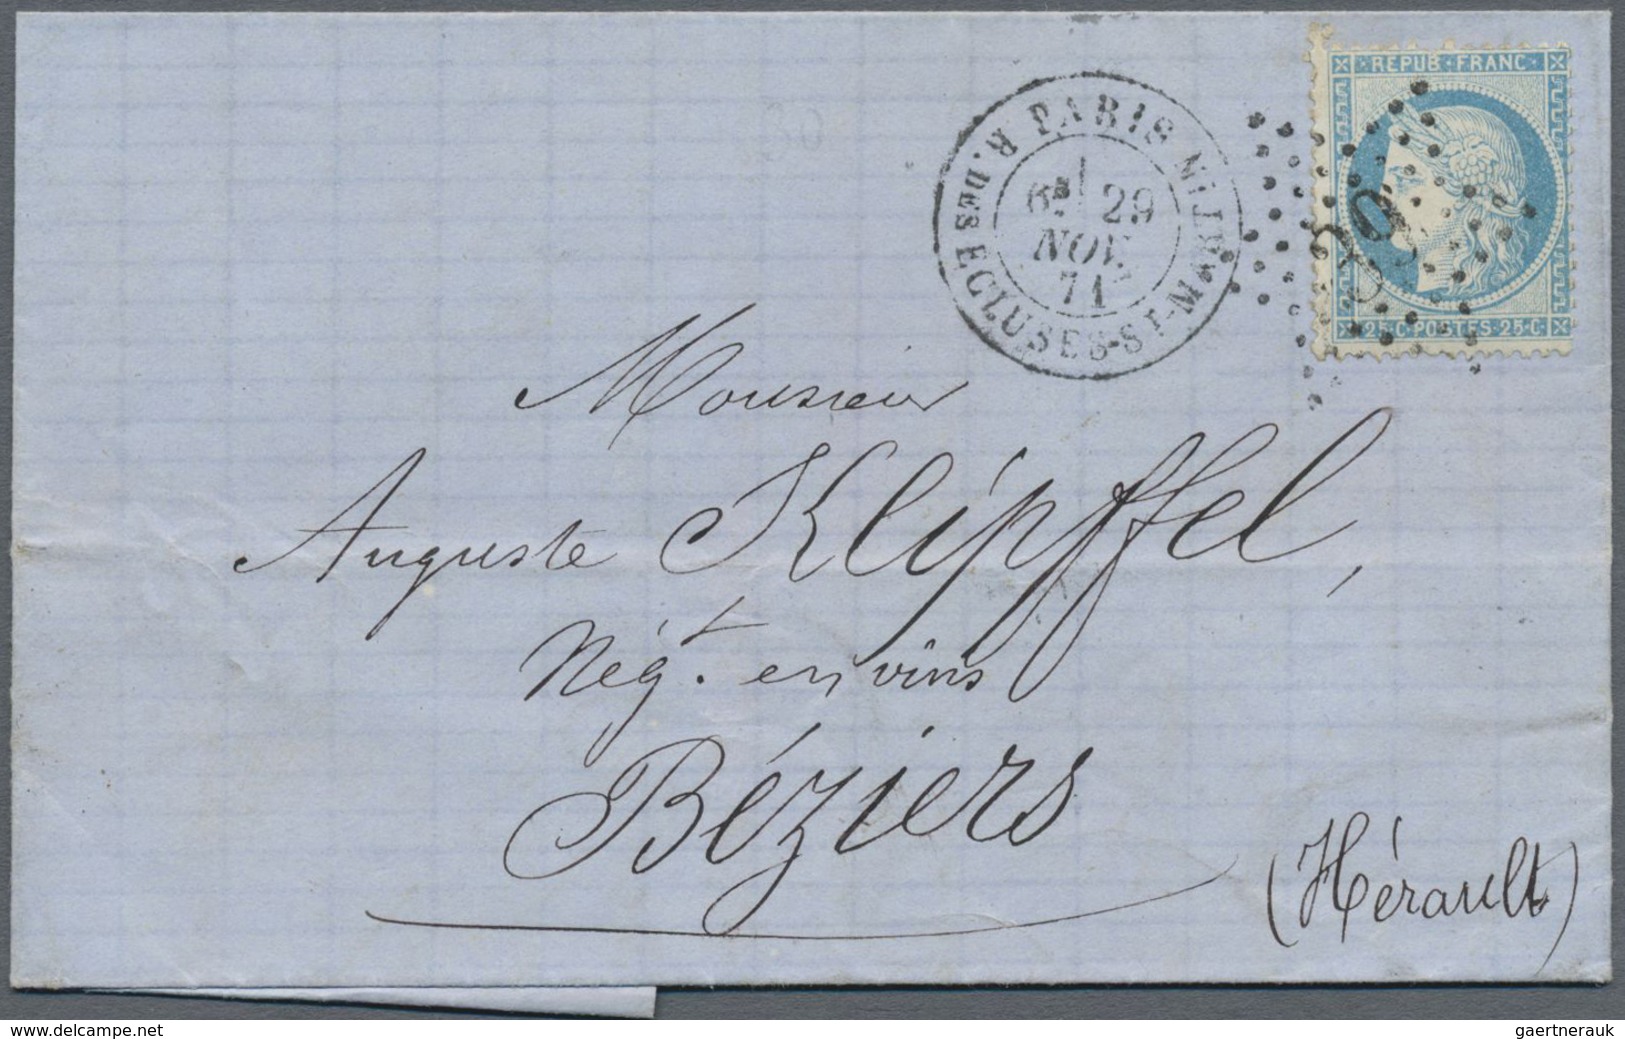 REPUB·FRANC·
25·C·POSTES·25·C·
PARIS
R. DES ECLUSES-ST-MARTIN
6E 29
NOV.
71
Monsieur
Auguste Klipffel,
Négt. en vins
Béziers
(Hérault)
www.delcampe.net
gaertnerauk